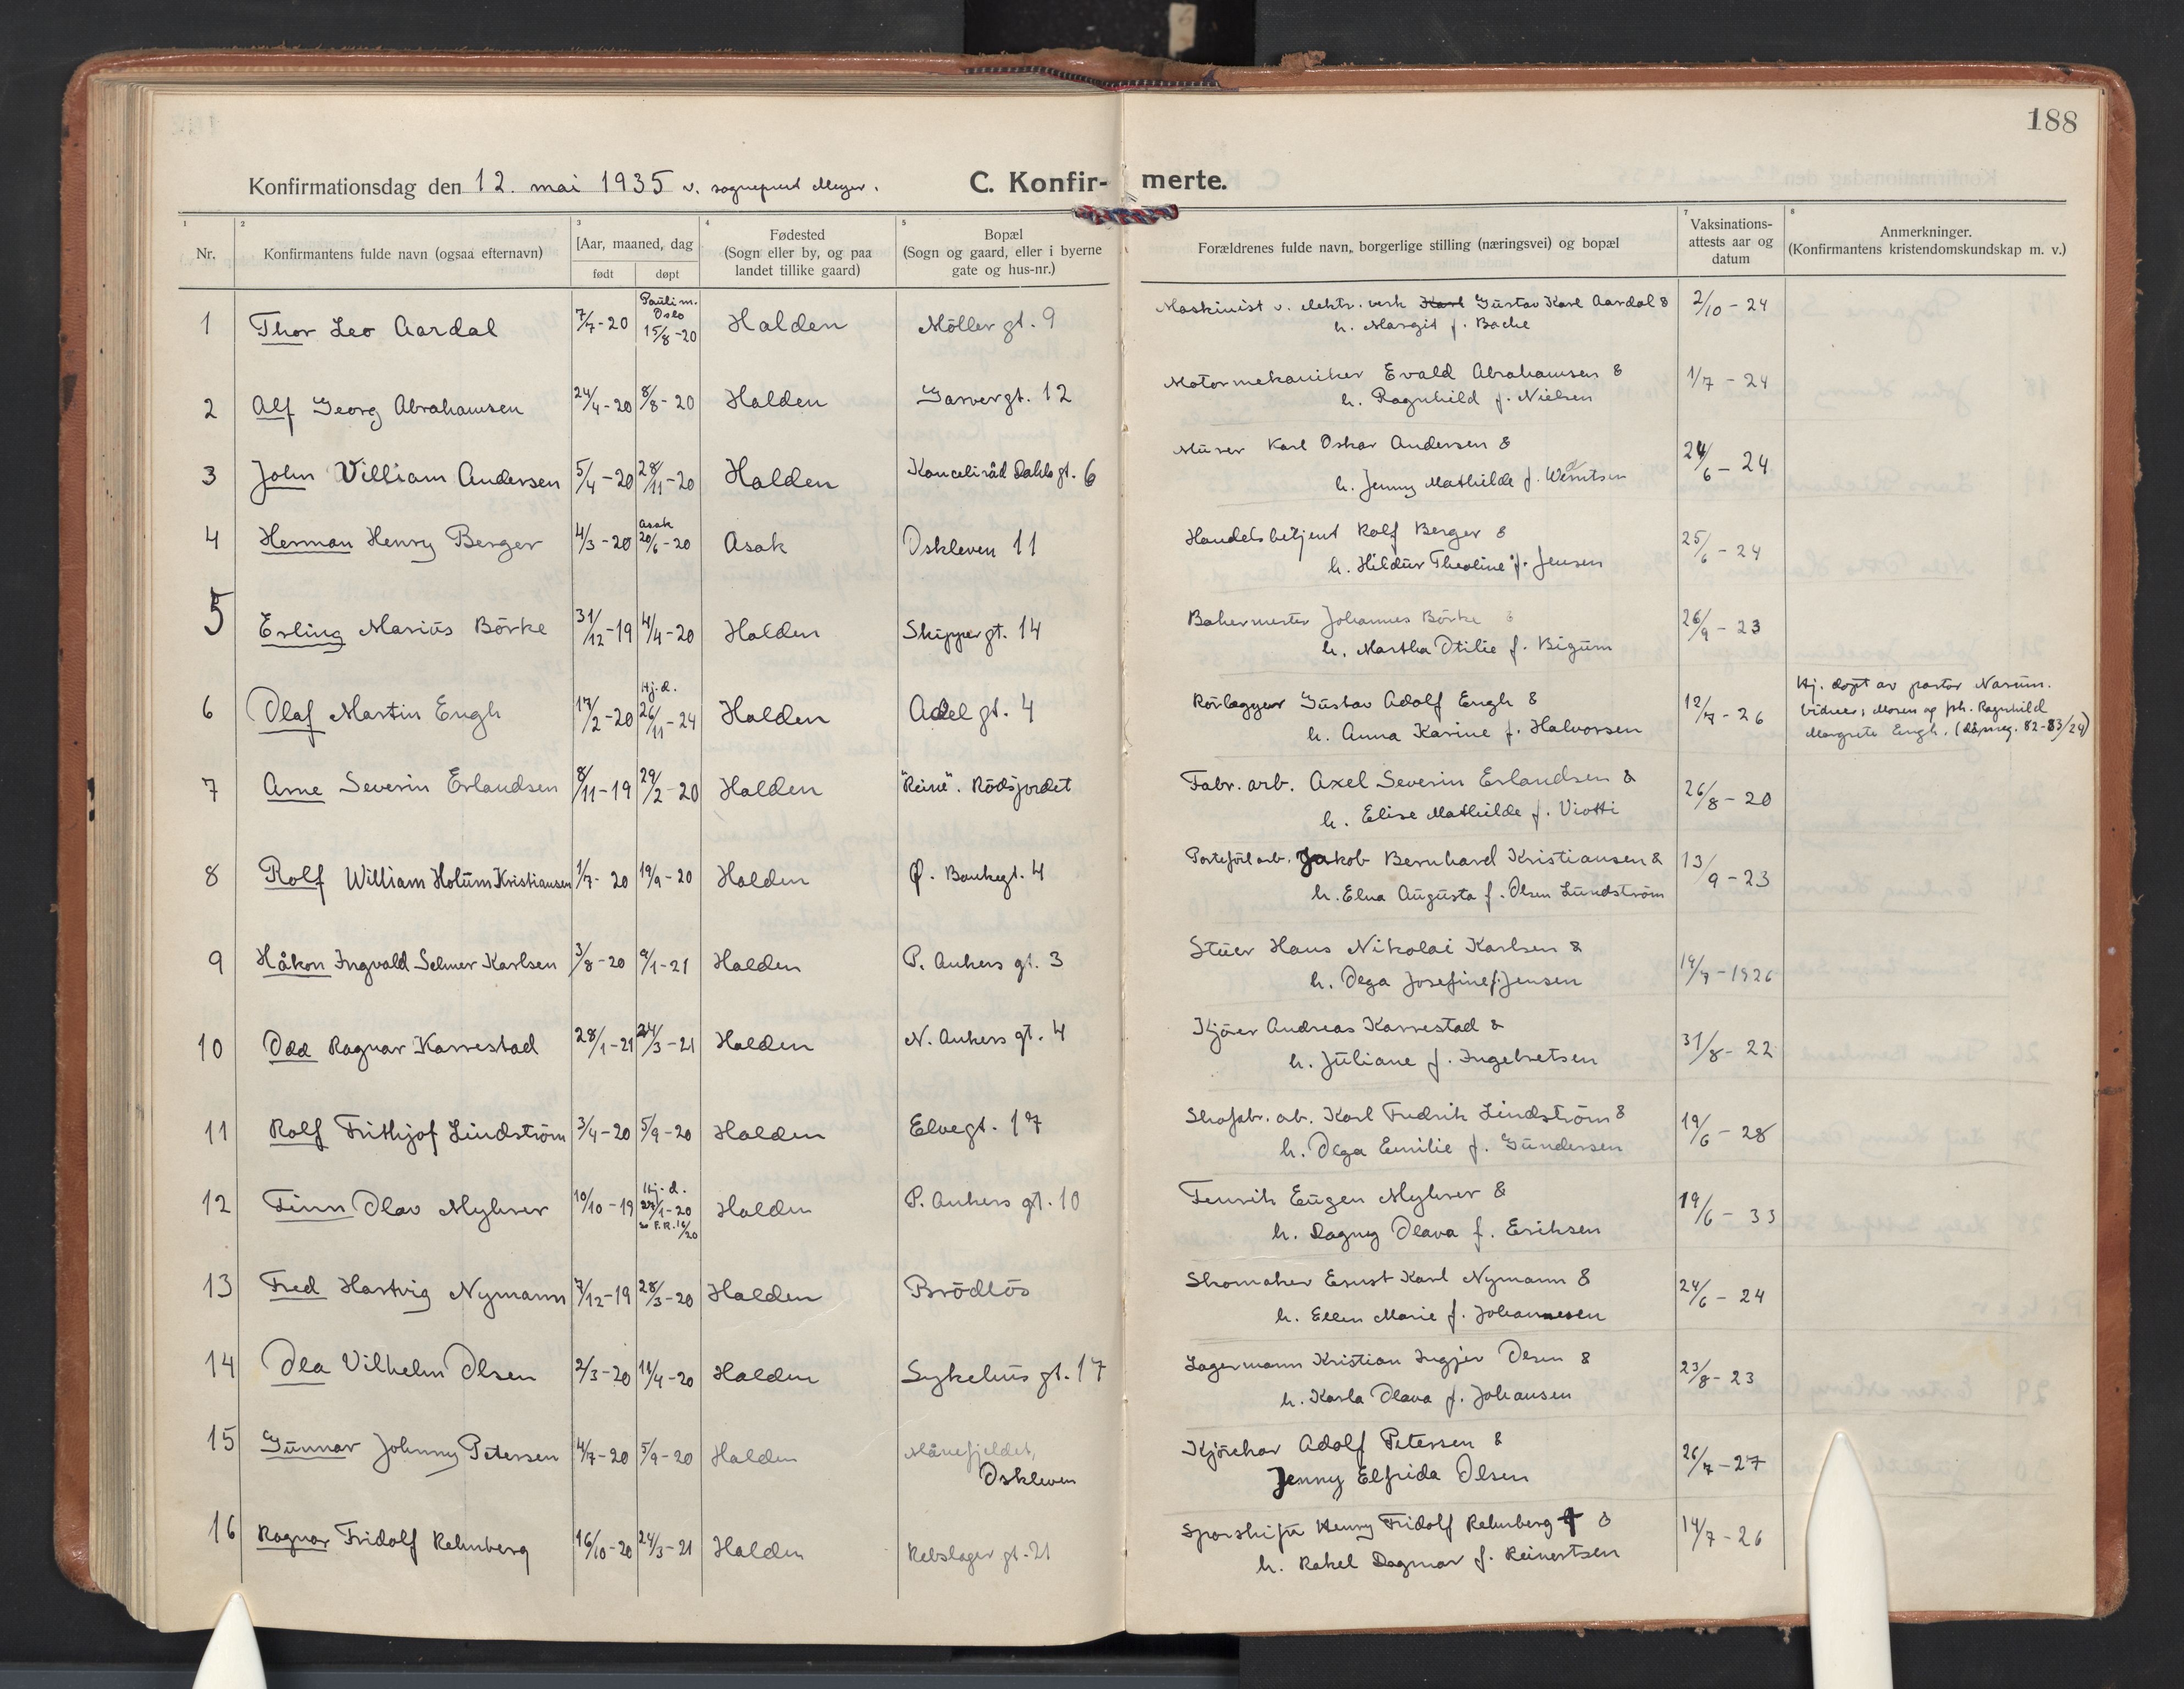 188
Konfirmationsdag den 12. mai 1935 v. sogneprest Meyer.
C. Konfirmerte.
1 2 3 4 5 7 8
Nr. Konfirmantens fulde navn (ogsaa efternavn) Aar, maaned, dag født døpt Fødested (Sogn eller by, og paa landet tillike gaard) Bopæl (Sogn og gaard, eller i byerne gate og hus-nr.) Forældrenes fulde navn, borgerlige stilling (næringsvei) og bopæl Vaksinations-attests aar og datum Anmerkninger. (Konfirmantens kristendomskundskap m. v.)
1 Thor Leo Aardal 7/7-20 Paulim. Oslo 15/8-20 Halden Möller gt. 9 Maskinist v. elektr. verk Karl Gustav Karl Aardal & 2/10-24
h. Margit f. Bache
2 Alf Georg Abrahamsen 24/4-20 8/8-20 Halden Garvergt. 12 Motormekaniker Evald Abrahamsen & 1/7-24
h. Ragnhild f. Nielsen
3 John Villiam Andersen 5/4-20 28/11-20 Halden Kanceliråd Dahls gt. 6 Murer Karl Oskar Andersen & 24/6-24
h. Jenny Mathilde f.
4 Herman Henry Berger 4/3-20 Asak 20/6-20 Asak Oskleven 11 Handelsbetjent Rolf Berger & 25/6-24
h. Hildur Theoline f. Jensen
5 Erling Marius Börke 31/12-19 4/4-20 Halden Skippergt. 14 Bakermester Johannes Börke & 26/9-23
h. Martha Otilie f. Bigum
6 Olaf Martin Engh 17/2-20 Hj. d. 26/11-24 Halden Adelgt. 4 Rörlegger Gustav Adolf Engh & 12/7-26 Hj. döpt av pastor Narum.
h. Anna Karine f. Halvorsen Vidner: Moren og frk. Ragnhild
Margrete Engh. (dåpsreg. 82-83/24)
7 Arne Severin Erlandsen 8/11-19 29/2-20 Halden "Reine". Rödsjordet Fabr. arb. Axel Severin Erlandsen & 26/8-20
h. Elise Mathilde f. Viotti
8 Rolf William Holum Kristiansen 1/7-20 19/9-20 Halden Ø. Bankegt. 4 Porteföl arb. Jakob Bernhard Kristiansen & 13/9-23
h. Elna Augusta f. Olsen Lundström
9 Håkon Ingvald Selmer Karlsen 3/8-20 9/1-21 Halden P. Ankers gt. 3 Stuer Hans Nikolai Karlsen & 14/7-1926
h. Olga Josefine f. Jensen
10 Odd Ragnar Karrestad 28/1-21 24/3-21 Halden N. Ankers gt. 4 Kjörer Andreas Karrestad & 31/8-22
h. Juliane f. Ingebretsen
11 Rolf Frithjof Lindström 3/4-20 5/9-20 Halden Elvegt. 17 Skofabr. arb. Karl Fredrik Lindström & 19/6-28
h. Olga Emilie f. Gundersen
12 Finn Olav Myhrer 10/10-19 Hj. d. 27/1-20 Halden P. Ankers gt. 10 Fenrik Eugen Myhrer & 19/6-33
h. Dagny Olava f. Eriksen
13 Fred Hartvig Nymann 7/12-19 28/3-20 Halden Brödlös Skomaker Ernst Karl Nymann & 24/6-24
h. Ellen Marie f. Johannesen
14 Ola Vilhelm Olsen 2/3-20 11/4-20 Halden Sykehusgt. 17 Lagermann Kristian Ingjer Olsen & 23/8-23
h. Karla Olava f. Johansen
15 Gunnar Johnny Petersen 4/7-20 5/9-20 Halden Månefjeldet, Oskleven Kjörekar Adolf Petersen & 26/7-27
Jenny Elfrida Olsen
16 Ragnar Fridolf Rehnberg 16/10-20 24/3-21 Halden Rebslager gt. 21 Sporskift. Henry Fridolf Rehnberg & 14/7-26
h. Rakel Dagmar f. Reinertsen